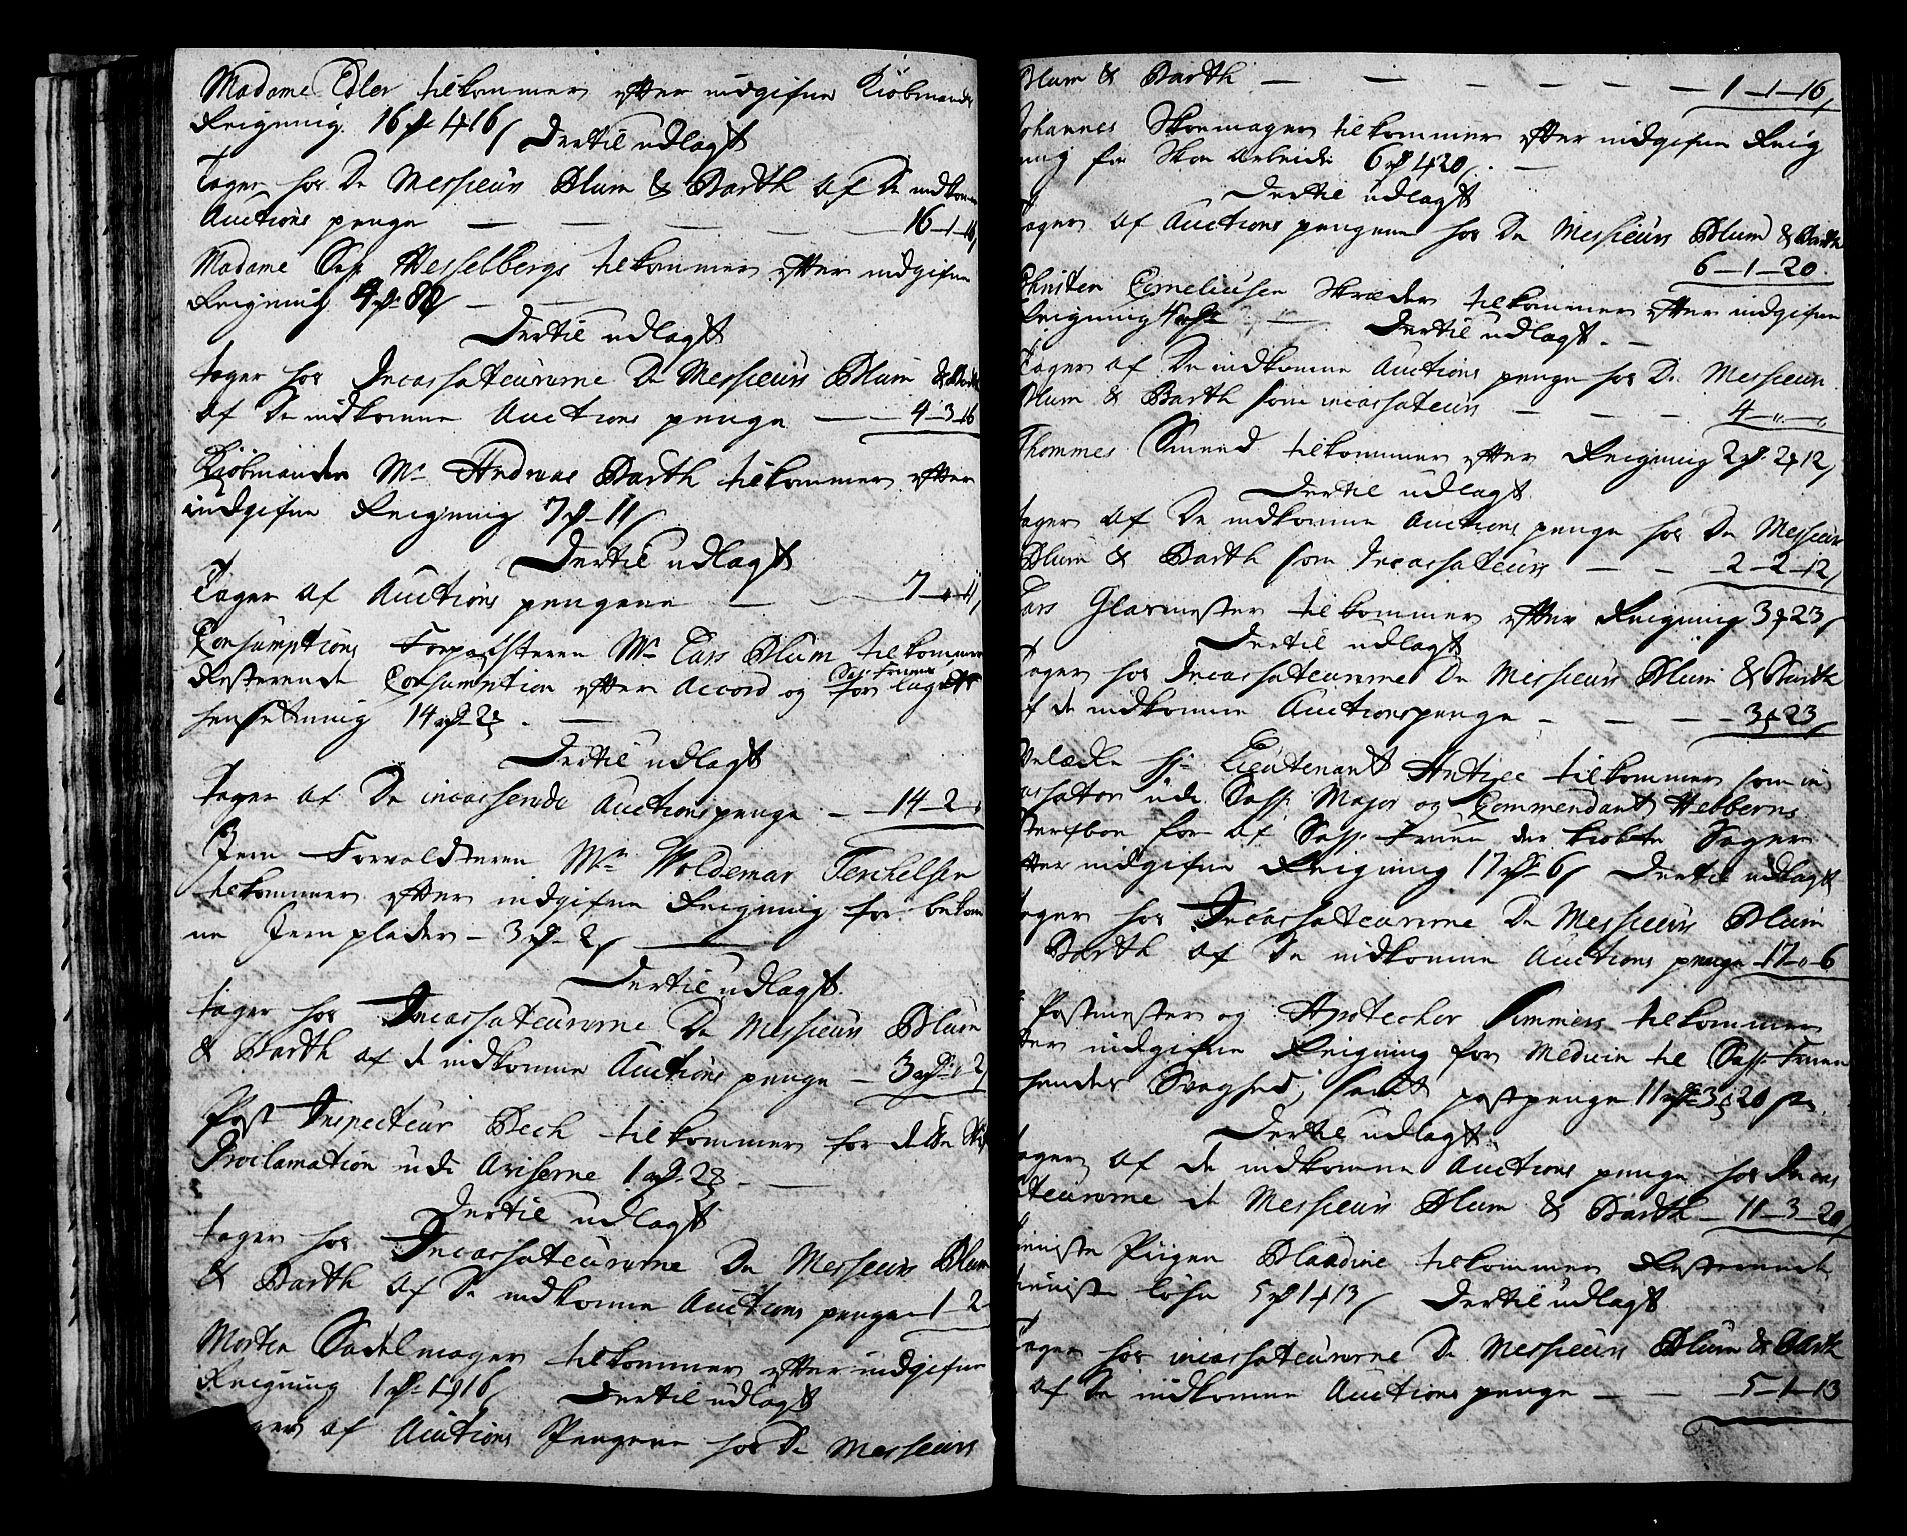 Madame Edler tilkommer efter indgifne Kiøbmands
Reigning 16 rd 1 16 s
Dertil udlagt
tager hos De Messieurs Blum & Barth af De indkomne
Auctions penge — — — — — 16-1-16
Madame Sal. Hesselbergs tilkommer efter indgifne
Reigning 4 rd
Dertil udlagt
tager hos Incassateurerne De Messieurs Blum & Barth
af De indkomne Auctions penge — 4-3-16
Kiøbmanden Mr Andreas Barth tilkommer efter
indgifne Reigning 7 rd - 11 s
Dertil udlagt
Tager af Auctions pengene — 7-"-11
Consumptions Forpagteren Mr Lars Blum tilkommer
Resterende Consumption efter Accord og Sal. Fruens
for
14 rd 2
Dertil udlagt
tager af De incassende Auctionspenge — 14-2-"
Jern Forvalteren Mr Woldemar Terchelsen
tilkommer efter indgifne Reigning for bekom
ne Jern plader - 3 rd - 2 s
Dertil udlagt
tager hos Incassateurerne De Messieurs Blum
& Barth af de indkomne Auctions penge — 3 rd " 2
Post Inspecteur Bech tilkommer for dette
Proclamation udi Aviserne 1 rd 2
Dertil udlagt
tager hos Incassateurerne De Messieurs Blum
& Barth af De indkomne Auctions penge 1-2
Morten Sadelmager tilkommer efter indgifne
Reigning 1 rd 1 16 s Dertil udlagt
af Auctions Pengene hos De Messieurs
Blum & Barth — — — — — 1-1-16
Johannes Skoemager tilkommer efter indgifne Reig
ning for Skoe Arbeide 6 rd 1 20 s
Dertil udlagt
tager af Auctions pengene hos De Messieurs Blum & Barth
6-1-20.
Christen Corneliusen Skræder tilkommer efter indgifne
Reigning 4 rd
Dertil udlagt.
Tager af De indkomne Auctions penge hos De Messieurs
Blum & Barth som incassateurs — — — 4-"-"
Thommes Smed tilkommer efter Reigning 2 rd 2 12 s
Dertil udlagt
tager af De indkomne Auctions penge hos De Messieurs
Blum & Barth som Incassateurs — — 2-2-12
Lars Glasmester tilkommer efter Reigning 3 23 s
Dertil udlagt
tager hos Incassateurerne De Messieurs Blum & Barth
af de indkomne Auctionspenge — — — 3 23
Hr Lieutenant tilkommer som in
cassator udi Sal. Major og Commendant Helbernes
Sterfboe for af Sal. Fruen der kiøbte Sager
efter indgifne Reigning 17 rd 6 s Dertil udlagt
tager hos Incassateurerne De Messieurs Blum
& Barth af De indkomne Auctions penge 17-"-6
Postmester og Apotecher tilkommer
efter indgifne Reigning for Medicin til Sal. Fruen
hendes Svaghed, samt postpenge 11 rd 3 20 s
Dertil udlagt
tager af de indkomne Auctions penge hos Incas
sateurerne de Messieurs Blum & Barth — 11-3-20
Tieniste Piigen Blandine tilkommer Resterende
tieniste løhn 5 rd 1 13 s Dertil udlagt
tager hos incassateurerne De Messieurs Blum & Barth
af De indkomne Auctions penge — — 5-1-13